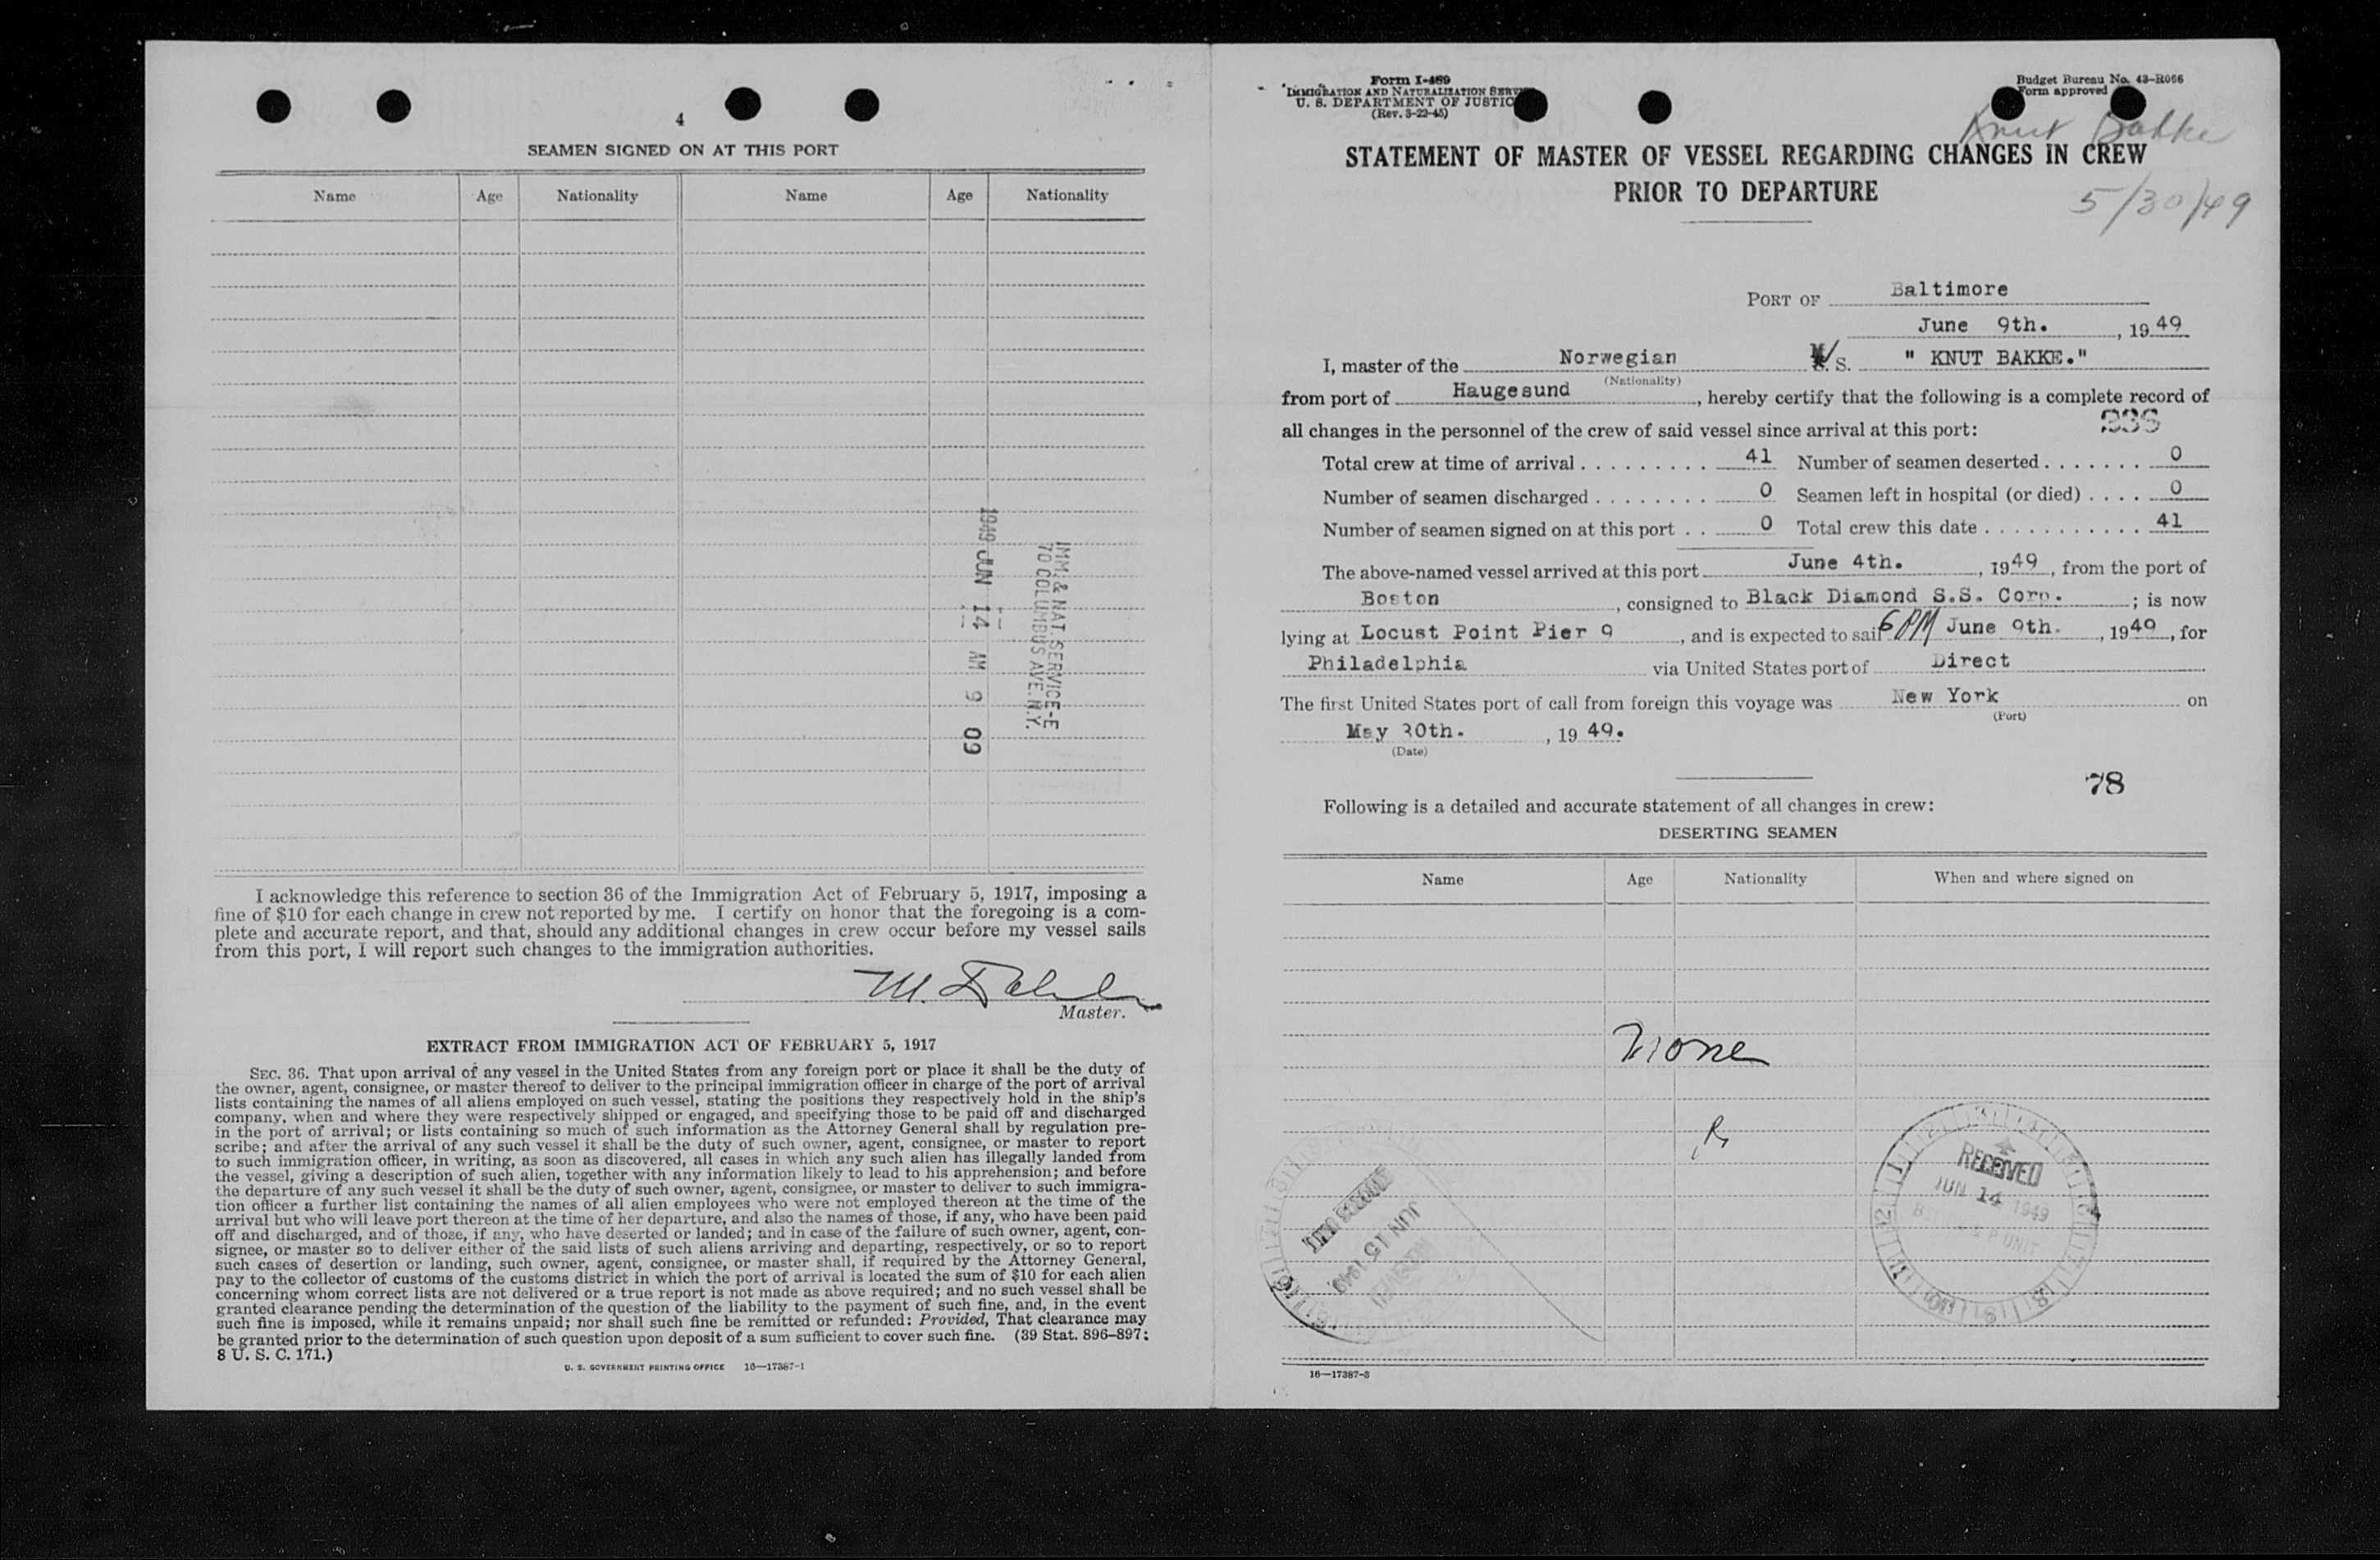 4
SEAMEN SIGNED ON AT THIS PORT
Name Age Nationality Name Age Nationality
1949 JUN 14 AM 9 09
IMM. & NAT. SERVICE-E
70 COLUMBUS AVE. N.Y.
I acknowledge this reference to section 36 of the Immigration Act of February 5, 1917, imposing a
fine of $10 for each change in crew not reported by me. I certify on honor that the foregoing is a com-
plete and accurate report, and that, should any additional changes in crew occur before my vessel sails
from this port, I will report such changes to the immigration authorities.
M.
Master.
EXTRACT FROM IMMIGRATION ACT OF FEBRUARY 5, 1917
SEC. 36. That upon arrival of any vessel in the United States from any foreign port or place it shall be the duty of
the owner, agent, consignee, or master thereof to deliver to the principal immigration officer in charge of the port of arrival
lists containing the names of all aliens employed on such vessel, stating the positions they respectively hold in the ship's
company, when and where they were respectively shipped or engaged, and specifying those to be paid off and discharged
in the port of arrival; or lists containing so much of such information as the Attorney General shall by regulation pre-
scribe; and after the arrival of any such vessel it shall be the duty of such owner, agent, consignee, or master to report
to such immigration officer, in writing, as soon as discovered, all cases in which any such alien has illegally landed from
the vessel, giving a description of such alien, together with any information likely to lead to his apprehension; and before
the departure of any such vessel it shall be the duty of such owner, agent, consignee, or master to deliver to such immigra-
tion officer a further list containing the names of all alien employees who were not employed thereon at the time of the
arrival but who will leave port thereon at the time of her departure, and also the names of those, if any, who have been paid
off and discharged, and of those, if any, who have deserted or landed; and in case of the failure of such owner, agent, con-
signee, or master so to deliver either of the said lists of such aliens arriving and departing, respectively, or so to report
such cases of desertion or landing, such owner, agent, consignee, or master shall, if required by the Attorney General,
pay to the collector of customs of the customs district in which the port of arrival is located the sum of $10 for each alien
concerning whom correct lists are not delivered or a true report is not made as above required; and no such vessel shall be
granted clearance pending the determination of the question of the liability to the payment of such fine, and, in the event
such fine is imposed, while it remains unpaid; nor shall such fine be remitted or refunded: Provided, That clearance may
be granted prior to the determination of such question upon deposit of a sum sufficient to cover such fine. (39 Stat. 896-897;
8 U. S. C. 171.)
U. S. GOVERNMENT PRINTING OFFICE 16—17387-1
Form I-489
IMMIGRATION AND NATURALIZATION SERVICE
U. S. DEPARTMENT OF JUSTIC
(Rev. 3-22-45)
Budget Bureau No. 43-R066
Form approved
Knut Bakke
STATEMENT OF MASTER OF VESSEL REGARDING CHANGES IN CREW
PRIOR TO DEPARTURE
5/30/49
PORT OF Baltimore
June 9th. , 19 49
I, master of the Norwegian M S. " KNUT BAKKE."
(Nationality)
from port of Haugesund , hereby certify that the following is a complete record of
all changes in the personnel of the crew of said vessel since arrival at this port: 336
Total crew at time of arrival . . . . . . . . . 41 Number of seamen deserted . . . . . . . 0
Number of seamen discharged . . . . . . . . 0 Seamen left in hospital (or died) . . . . 0
Number of seamen signed on at this port . . 0 Total crew this date . . . . . . . . . . . 41
The above-named vessel arrived at this port June 4th. , 19 49 , from the port of
Boston , consigned to Black Diamond S.S. Corp. ; is now
lying at Locust Point Pier 9 , and is expected to sail 6 PM June 9th. , 19 49 , for
Philadelphia via United States port of Direct
The first United States port of call from foreign this voyage was New York on
(Port)
May 30th. , 19 49.
(Date)
78
Following is a detailed and accurate statement of all changes in crew:
DESERTING SEAMEN
Name Age Nationality When and where signed on
None
RECEIVED
JUN 14 1949
P UNIT
JUN 15 1949
RECEIVED
16—17387-3